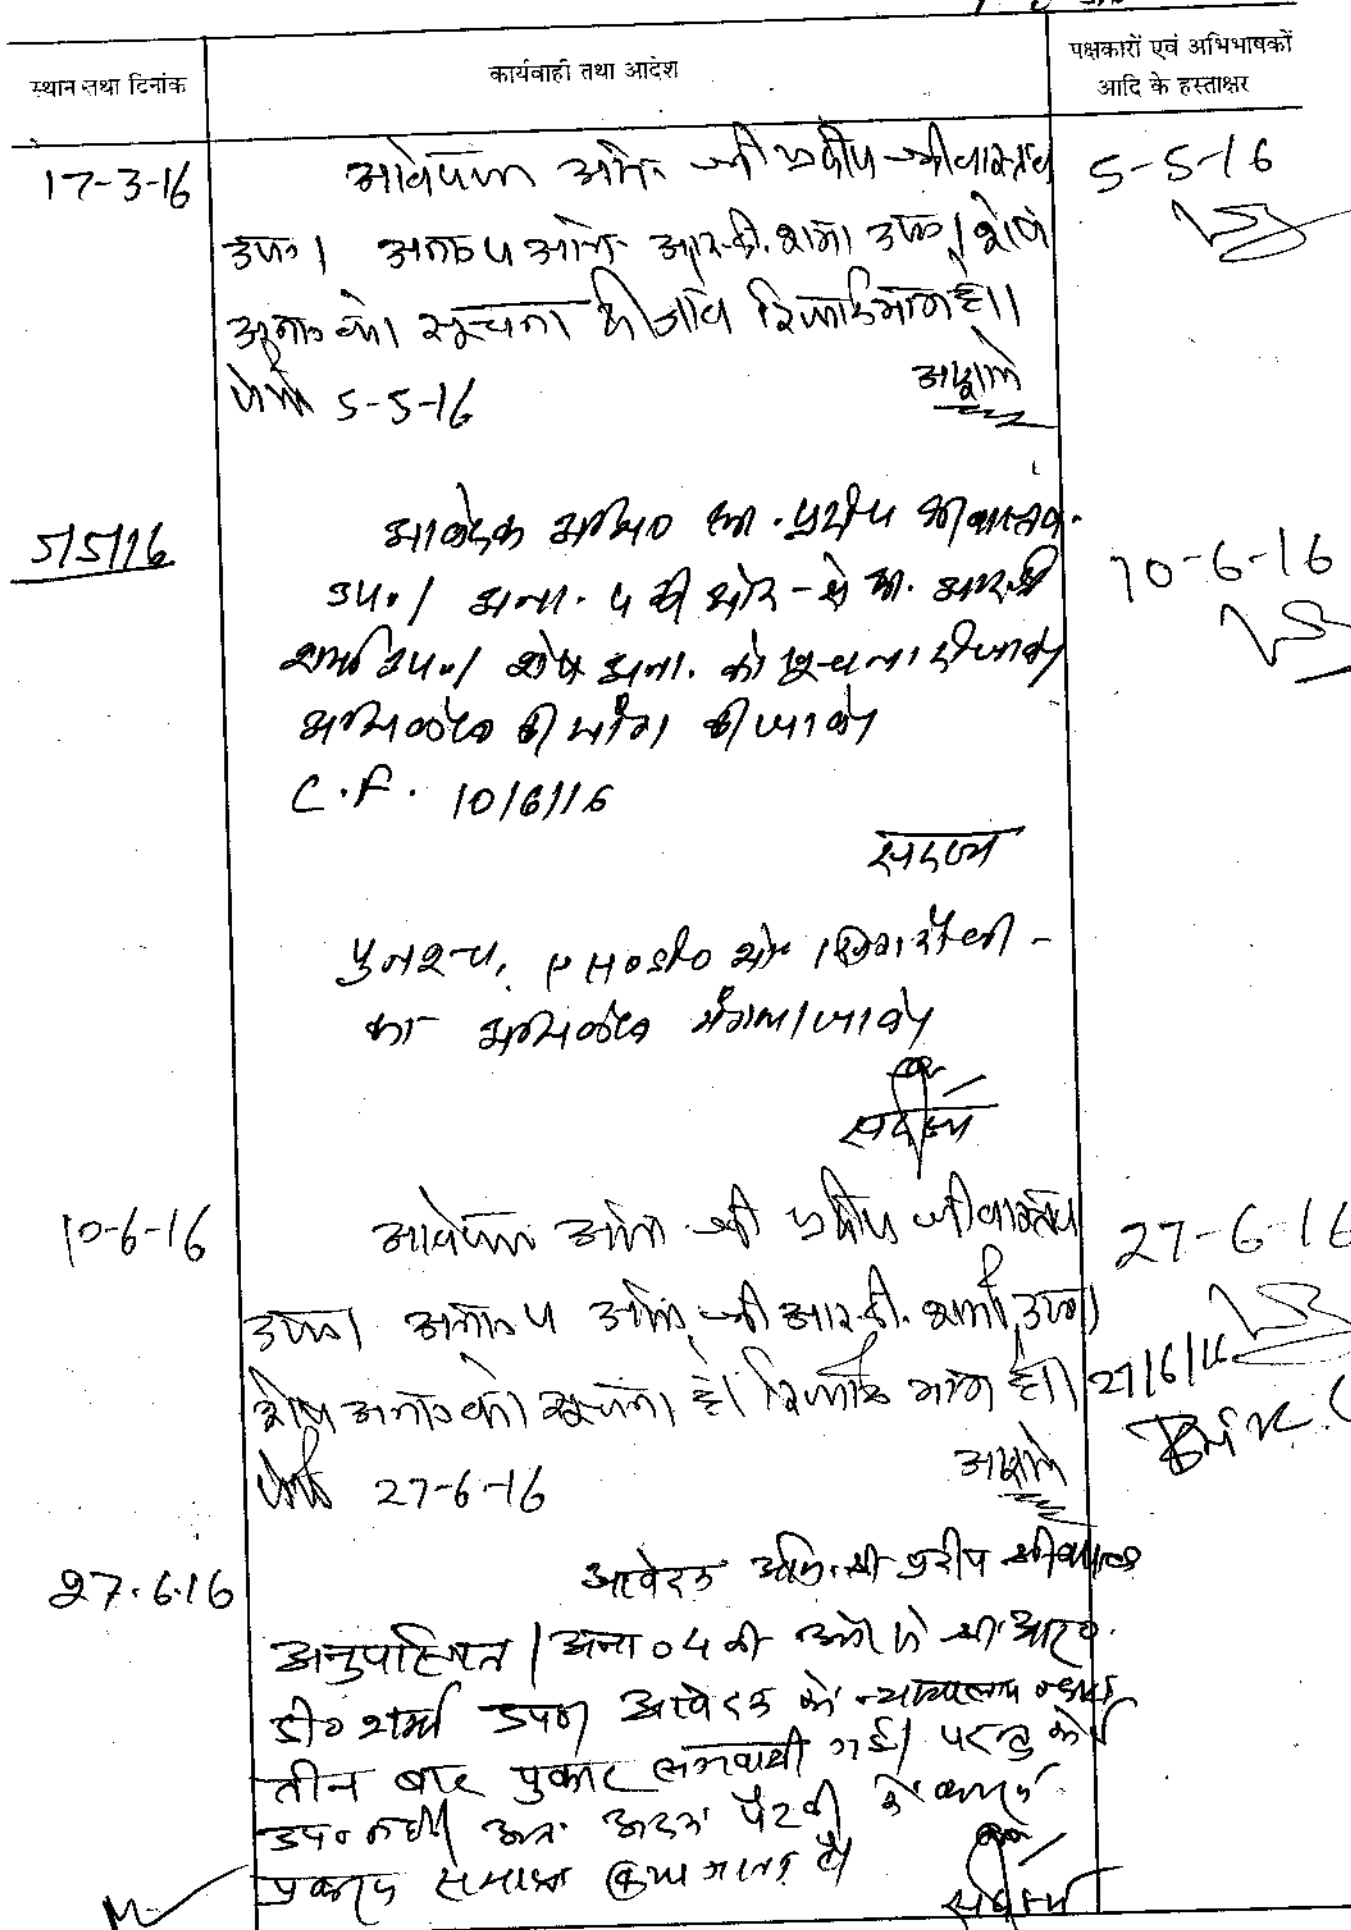 स्थान तथा दिनांक
कार्यवाही तथा आदेश
पक्षकारों एवं अभिभाषकों
आदि के हस्ताक्षर
17-3-16
आवेदक अभि. श्री प्रदीप श्रीवास्तव
5-5-16
उप.। अना. 4 अभि. आर.डी. शर्मा उप.। शेष
अना. को सूचना दी जावे रिकार्ड मांग है।
पेशी 5-5-16
5/5/16
आवेदक अभि. श्री प्रदीप श्रीवास्तव
10-6-16
उप.। अना. 4 की ओर से श्री आर.डी
शर्मा उप.। शेष अना. को सूचना दी जावे
अभिलेख की मांग की जावे
C.F. 10/6/16
सदस्य
पुनश्च,
का अभिलेख मंगाया जावे
सदस्य
10-6-16
आवेदक अभि. श्री प्रदीप श्रीवास्तव
27-6-16
उप.। अना. 4 अभि. श्री आर.डी. शर्मा उप.।
शेष अना. को सूचना है। रिकार्ड मांग है।
27/6/16
पेशी 27-6-16
27.6.16
आवेदक अभि. श्री प्रदीप श्रीवास्तव
अनुपस्थित। अना० 4 की ओर से श्री आर०
डी० शर्मा उप०। आवेदक को न्यायालय
तीन बार पुकार लगवायी गई। परन्तु कोई
उप० नहीं। अतः अदम पैरवी में
प्रकरण समाप्त किया जाता है
सदस्य